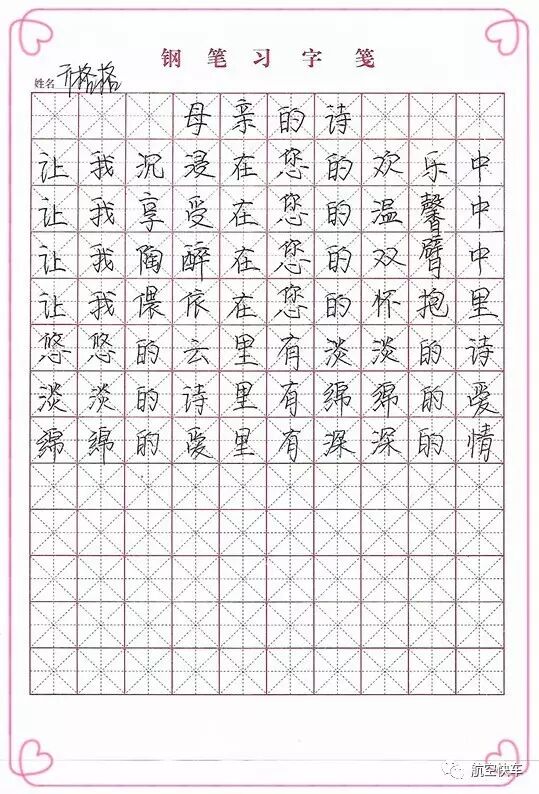 钢笔习字笺
姓名 亓格格
母亲的诗
让我沉浸在您的欢乐中
让我享受在您的温馨中
让我陶醉在您的双臂中
让我偎依在您的怀抱里
悠悠的云里有淡淡的诗
淡淡的诗里有绵绵的爱
绵绵的爱里有深深的情
航空快车